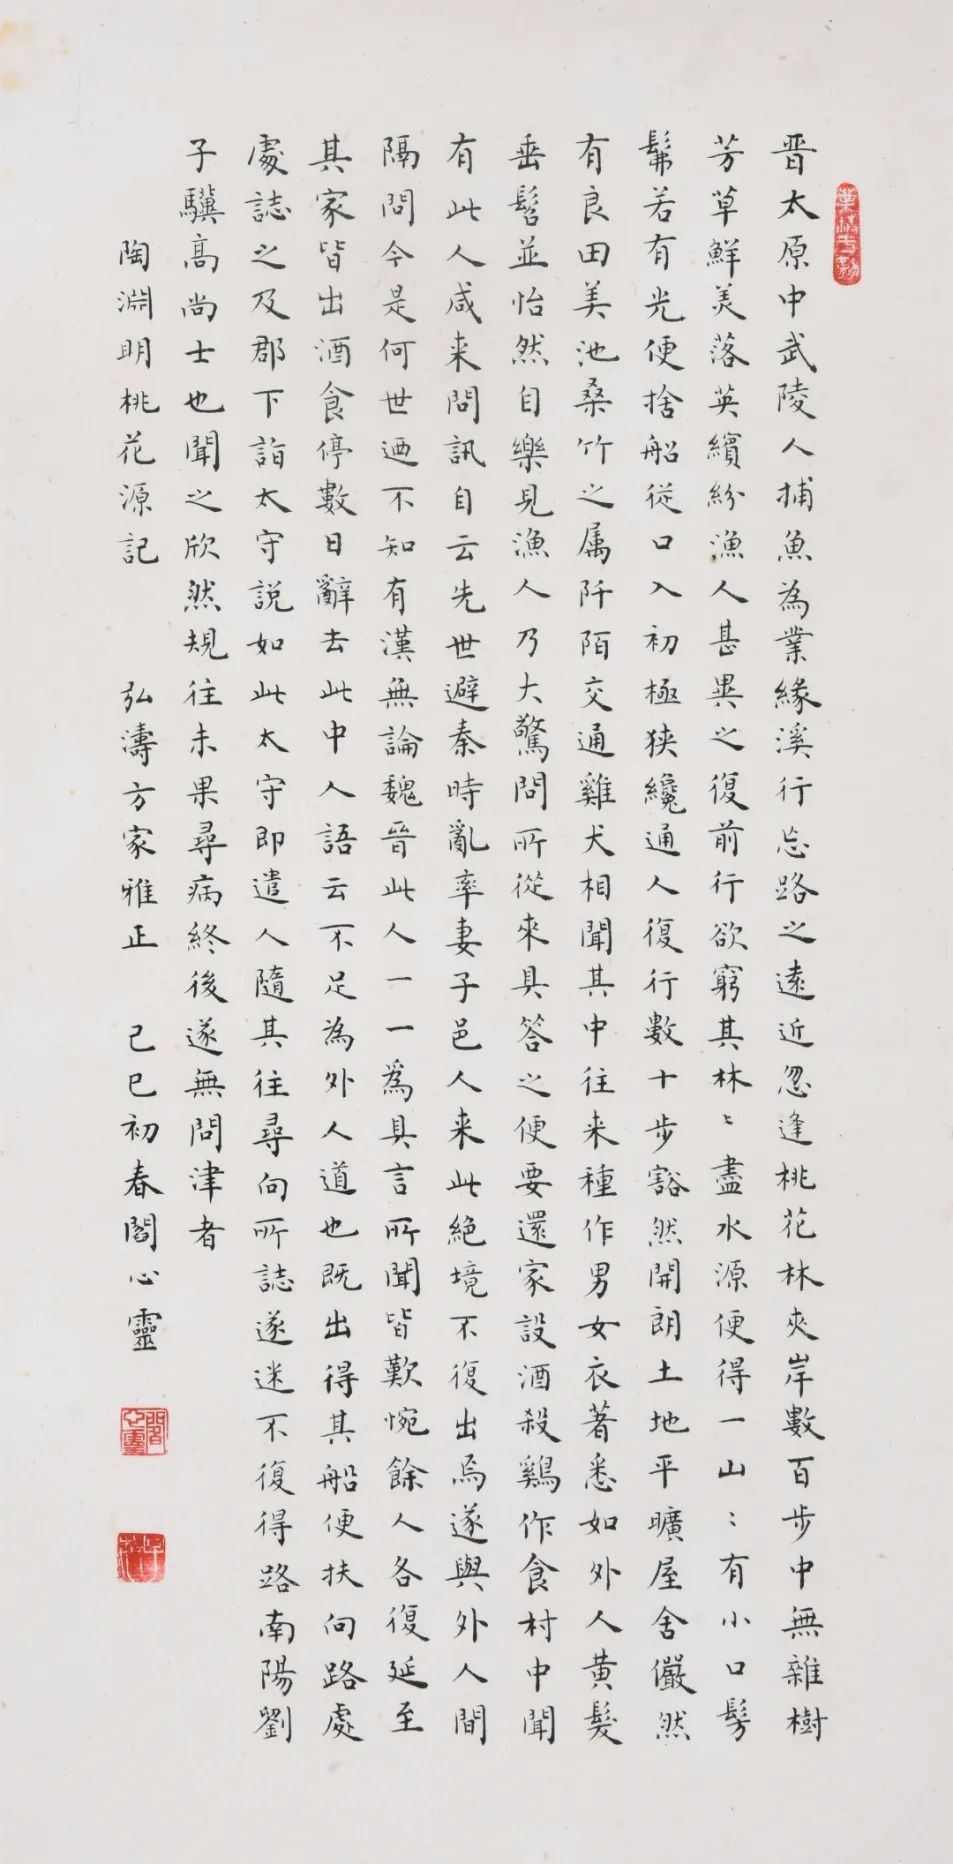 晋太原中武陵人捕魚為業緣溪行忘路之遠近忽逢桃花林夾岸數百步中無雜樹
芳草鮮美落英繽紛漁人甚異之復前行欲窮其林〻盡水源便得一山〻有小口髣
髴若有光便捨船從口入初極狹纔通人復行數十步豁然開朗土地平曠屋舍儼然
有良田美池桑竹之属阡陌交通雞犬相聞其中往来種作男女衣著悉如外人黄髮
垂髫並怡然自樂見漁人乃大驚問所從來具答之便要還家設酒殺鷄作食村中聞
有此人咸来問訊自云先世避秦時亂率妻子邑人来此絶境不復出焉遂與外人間
隔問今是何世迺不知有漢無論魏晋此人一一為具言所聞皆歎惋餘人各復延至
其家皆出酒食停數日辭去此中人語云不足為外人道也既出得其船便扶向路處
處誌之及郡下詣太守説如此太守即遣人隨其往尋向所誌遂迷不復得路南陽劉
子驥高尚士也聞之欣然規往未果尋病終後遂無問津者
陶淵明桃花源記 弘濤方家雅正 己巳初春閻心靈